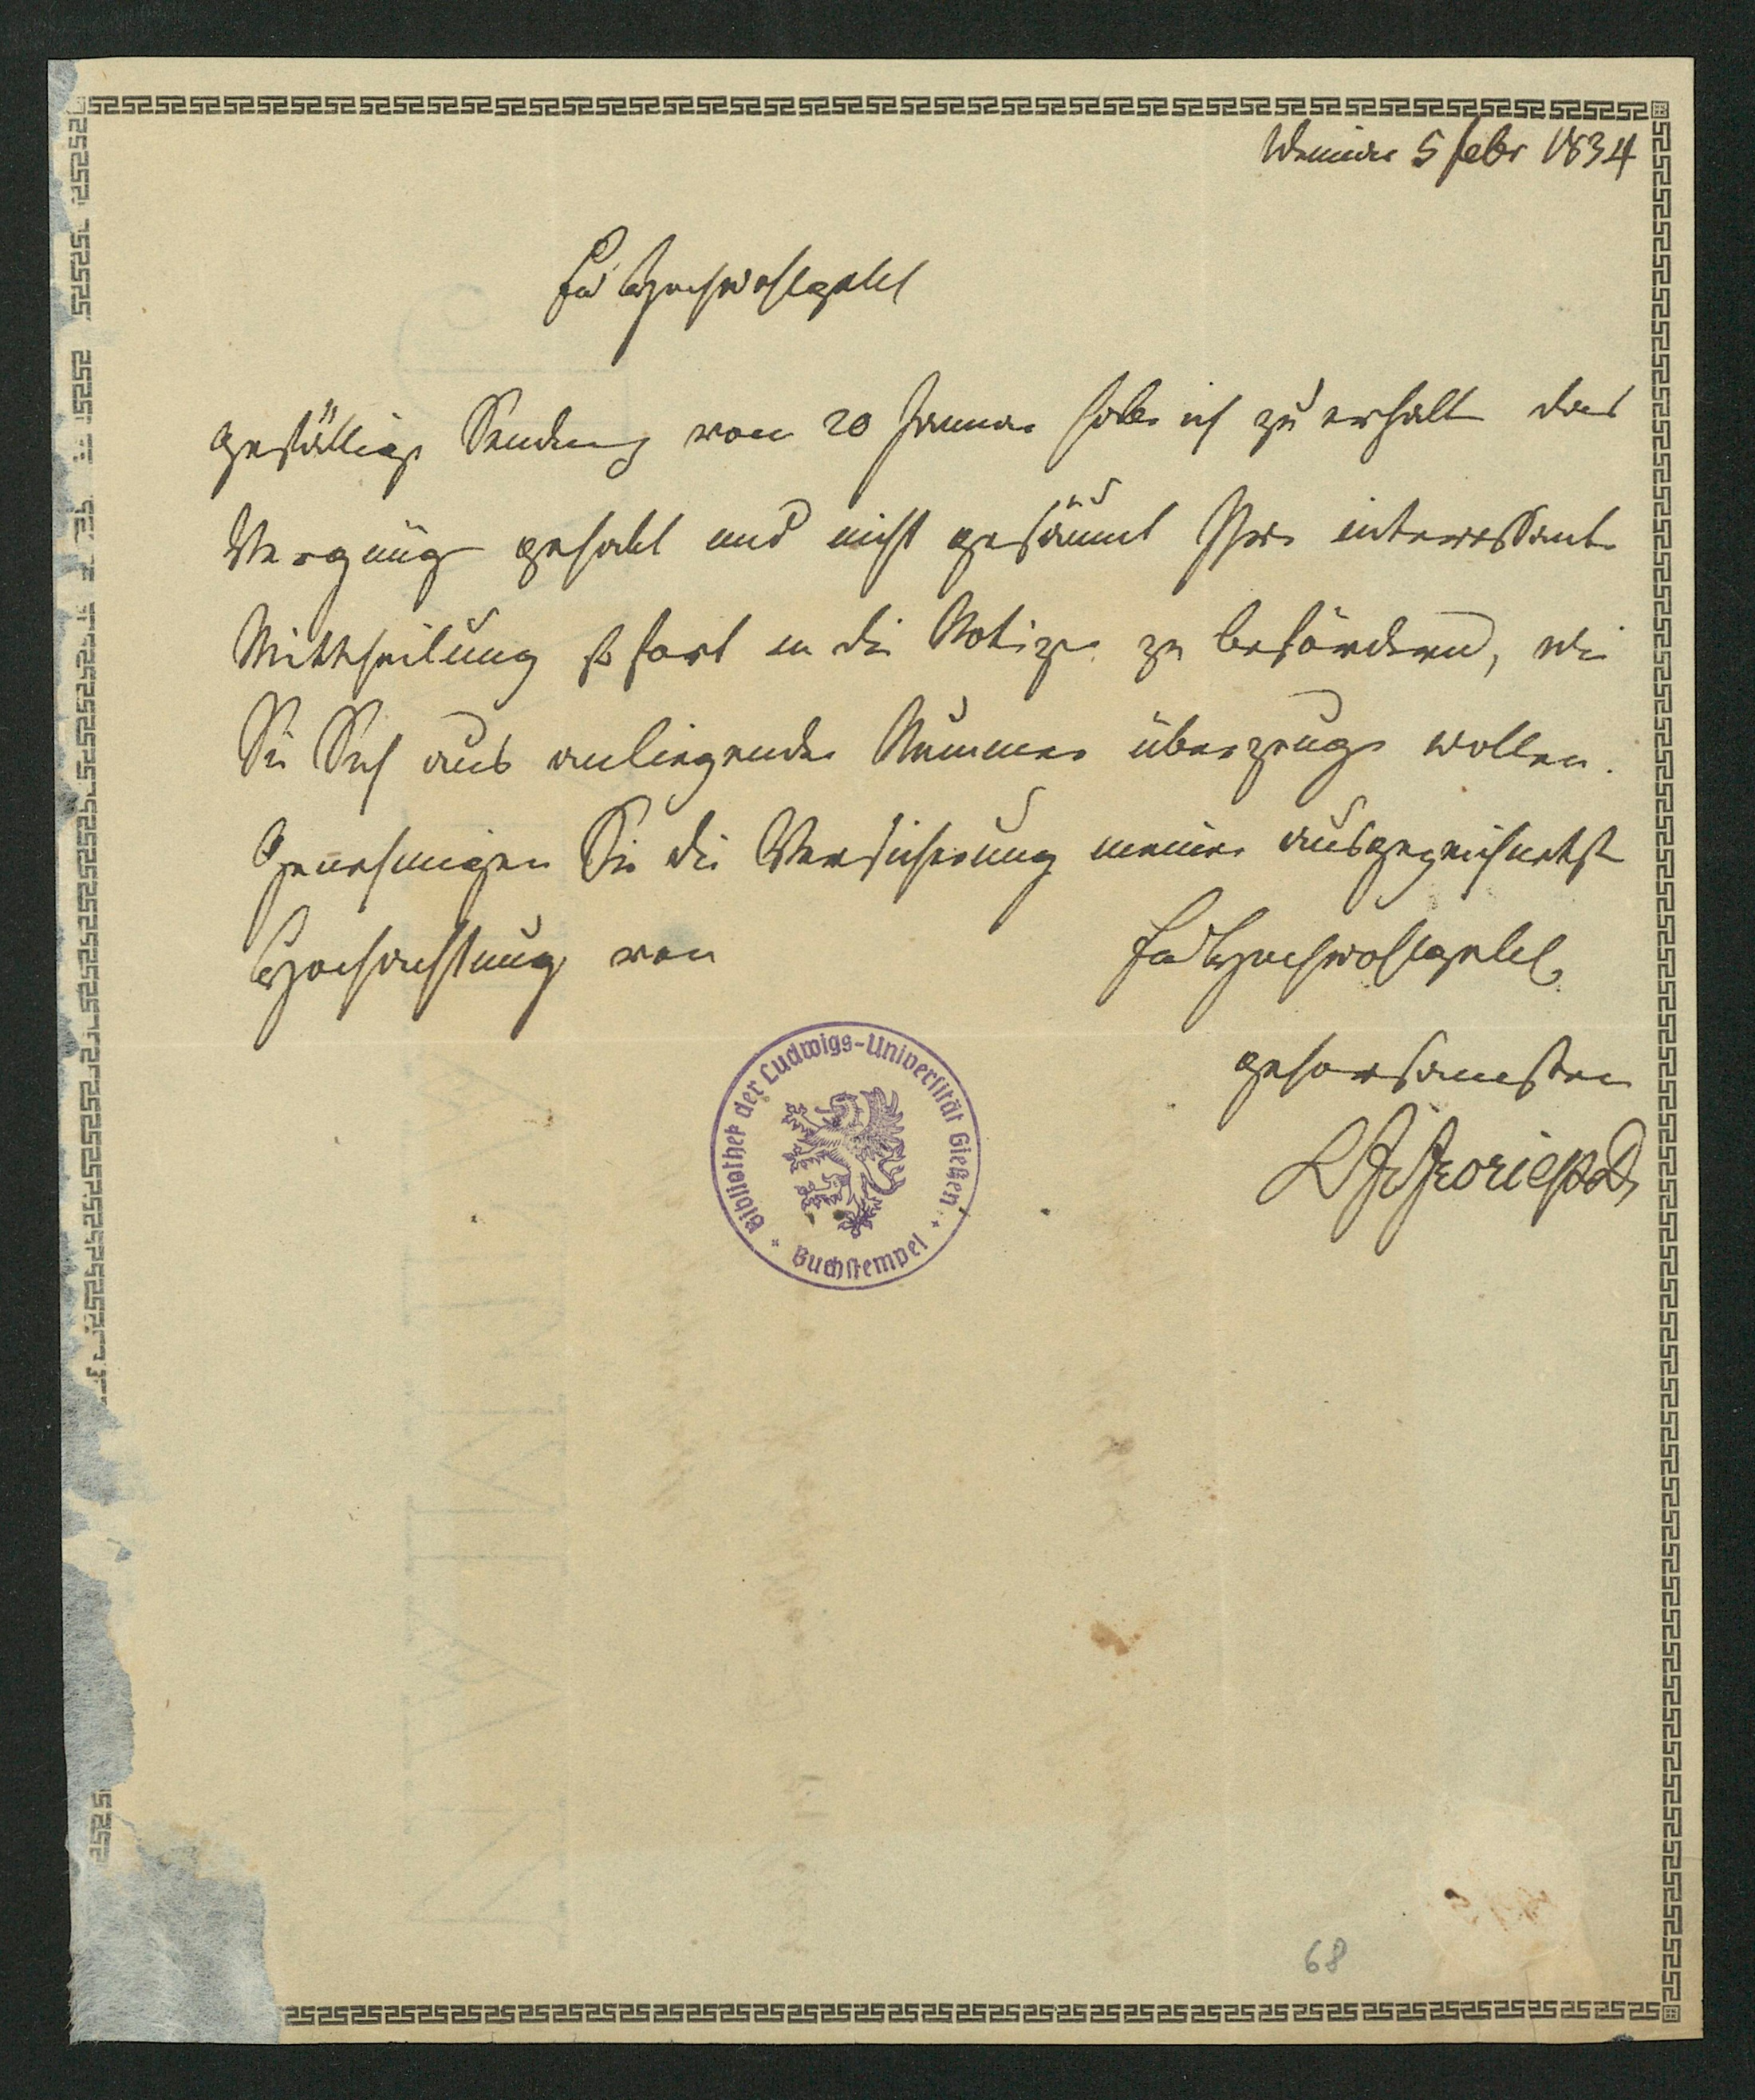 Weimar 5 Febr 1834
Ew Hochwohlgeb
gefällige Sendung vom 20 Januar habe ich zu erhalten das
Vergnügen gehabt und nicht gesäumt Ihre interessante
Mittheilung sofort in die Notizen zu befördern, wie
Sie Sich aus anliegender Nummer überzeugen wollen.
Genehmigen Sie die Versicherung meiner ausgezeichnetsten
Hochachtung von
Ew Hochwohlgeb
gehorsamsten
LFvFroriep
Bibliothek der Ludwigs-Universität Gießen
Buchstempel
68